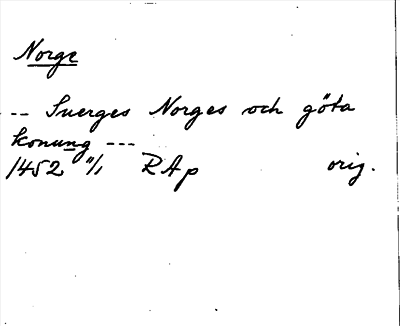 Norge
-- Suerges Norges och göta
konung ---
1452 11/1 RAp orig.